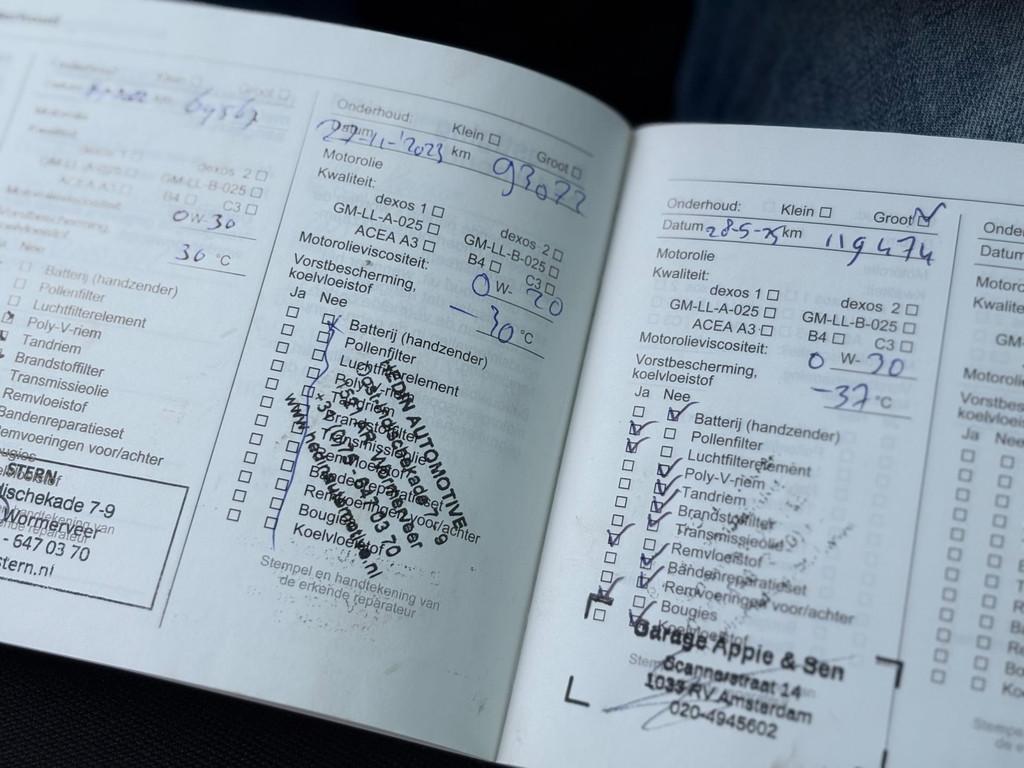 Onderhoud: Klein Groot
km 69567
Motorolie
Kwaliteit:
dexos 1 dexos 2
GM-LL-A-025 GM-LL-B-025
ACEA A3 B4 C3
Motorolieviscositeit: 0 W- 30
Vorstbescherming,
koelvloeistof 36 °C
Ja Nee
Batterij (handzender)
Pollenfilter
Luchtfilterelement
Poly-V-riem
Tandriem
Brandstoffilter
Transmissieolie
Remvloeistof
Bandenreparatieset
Remvoeringen voor/achter
Bougies
STERN
ischekade 7-9
Wormerveer
- 647 03 70
stern.nl
Onderhoud: Klein Groot
Datum 27-11-'2023 km 93022
Motorolie
Kwaliteit:
dexos 1 dexos 2
GM-LL-A-025 GM-LL-B-025
ACEA A3 B4 C3
Motorolieviscositeit: 0 W- 20
Vorstbescherming,
koelvloeistof -30 °C
Ja Nee
Batterij (handzender)
Pollenfilter
Luchtfilterelement
Poly-V-riem
Tandriem
Brandstoffilter
Transmissieolie
Remvloeistof
Bandenreparatieset
Remvoeringen voor/achter
Bougies
Koelvloeistof
HEDIN AUTOMOTIVE
7 - 9
Wormerveer
647 03 70
www.hedinautomotive.nl
Stempel en handtekening van
de erkende reparateur
Onderhoud: Klein Groot
Datum 28-5-25 km 119474
Motorolie
Kwaliteit:
dexos 1 dexos 2
GM-LL-A-025 GM-LL-B-025
ACEA A3 B4 C3
Motorolieviscositeit: 0 W- 20
Vorstbescherming,
koelvloeistof -37 °C
Ja Nee
Batterij (handzender)
Pollenfilter
Luchtfilterelement
Poly-V-riem
Tandriem
Brandstoffilter
Transmissieolie
Remvloeistof
Bandenreparatieset
Remvoeringen voor/achter
Bougies
Koelvloeistof
Garage Appie & Sen
Scannerstraat 14
1033 RV Amsterdam
020-4945602
Onde
Datum
Motorc
Kwalite
GM-
Motoroli
Vorstbes
koelvloei
Ja Nee
Stempel
de